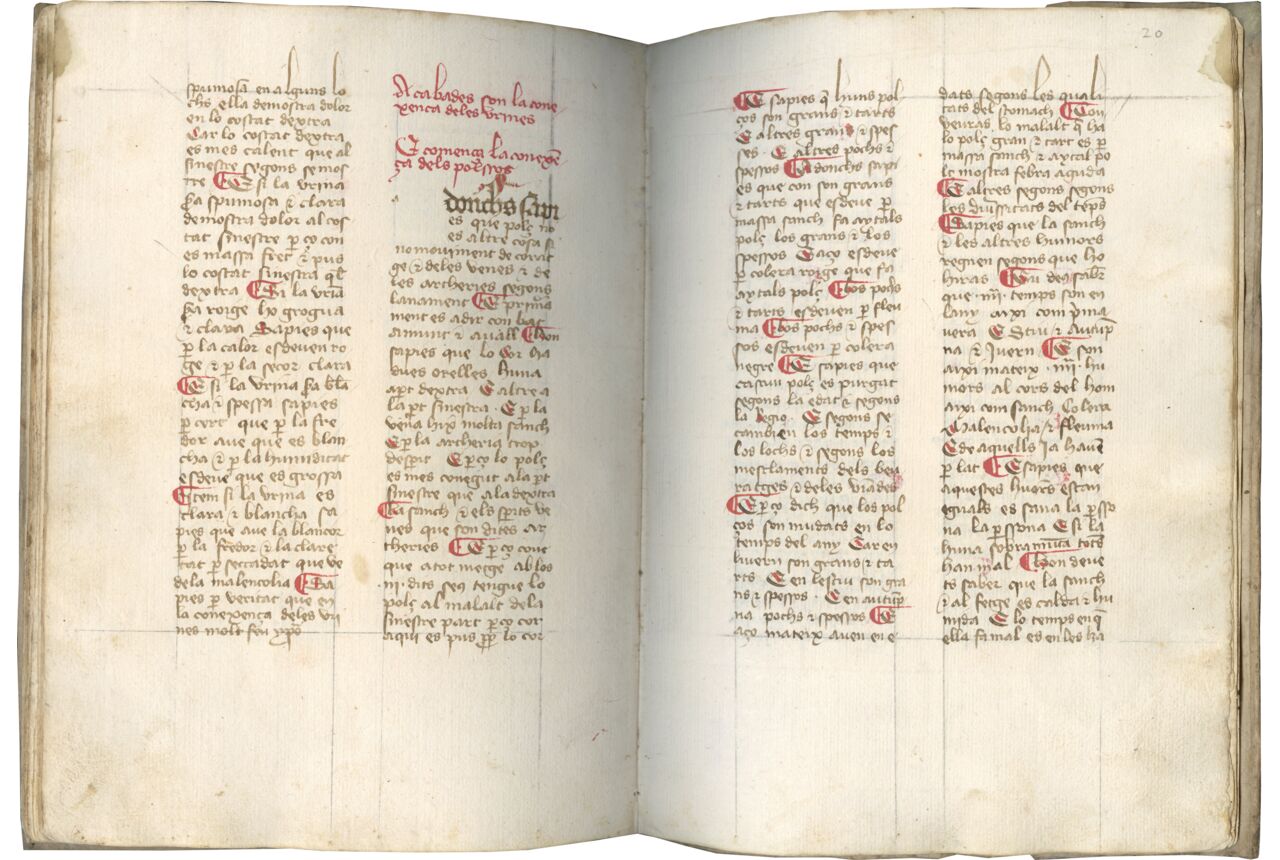 spumosa en alguns lo
chs ella demostra dolor
en lo costat dextra
Car lo costat dextra
es mes calent que al
sinestre segons se mos
tre E si la vrina
fa spumosa & clara
demostra dolor al cos
tat sinestre p ço con
es massa fret & pus
lo costat sinestra q̄l
dextra E si la vrīa
fa roige hx grogua
& clara Sapies que
p la calor esdeven ro
ge & p la secor clara
E si la vrina fa blā
cha & spessa sapies
p cert que p la fre
dor aue que es blan
cha & p la humiditat
esdeue que es grossa
Item si la vrina es
clara & blancha sa
pies que aue la blancor
p la fredor & la clare
tat p seccadat que ve
de la malencolia Sa
pies p veritat que en
la conexença deles vri
nes molt feu ypos
Acabades son la cone
xença deles vrines
E comença la conexē
ça dels polssos
Adonchs sapi
es que polç no
es altre cosa si
no mouiment de corat
ge & deles venes & de
les archeries segons
lanament E prima
ment es a dir con bat
amunt & auall E don
sapies que lo cor ha
dues orelles huna
a pt dextra E altre a
la pt sinestra E p la
vena hix molta sanch
E p la archeria trop
desperit E p ço lo polç
es mes conegut ala pt
sinestre que ala dextra
La sanch & els spits ve
nes que son dites ar
theries E p ço coue
que a tot metge ab los
.iii. dits seq tengue lo
polç al malalt dela
sinestre part p ço cor
aqui es pus pp lo cor
20
E sapies q̄ huns pol
ços son grans & tarts
E altres grans & spes
ses E altres pochs &
spessos Adonchs sapi
es que con son grans
& tarts que esdeue p
massa sanch fa aytals
polç los grans & los
spessos E aço esdeue
p colera roige que fa
aytals polç E los pochs
& tarts esdeuen p fleu
ma E los pochs & spes
sos esdeuen p colera
negre E sapies que
cascun polç es purgat
segons la edat & segons
la legio E segons se
cambien los temps &
los lochs & segons los
mesclaments dels beu
ratges & deles viādes
E p ço dich que los pol
ços son mudats en lo
temps del any Car en
liuern son grans & ta
rts E en lestiu son gra
ns & spessos E en autūp
na pochs & spessos E
aço mateix auen en e
dats segons les quali
tats del stomach E con
veuras lo malalt q̄ ha
lo polç gran & tart es p
massa sanch & aytal po
lç mostra febra aguda
E altres segons segons
les diuersitats del tēps
Sapies que la sanch
& les altres humors
regnen segons que ho
hiras E deus saber
que .iiii. temps son en
lany axi com prima
vera E Stiu & Autup̄
na & Juern E son
axi mateix .iiii. hu
mors al cors del hom
axi com sanch Colera
Malencolia & fleuma
E de aquells ja hauē
p lat E sapies que
aquestes humors estan
eguals es sana la p̄sso
na la p̄ssona E si la
huna sobramūta tots
han mal E don deue
ts saber que la sanch
& al fetge es calda & hu
mida E lo temps en q̄
ella fa mal es en les ha